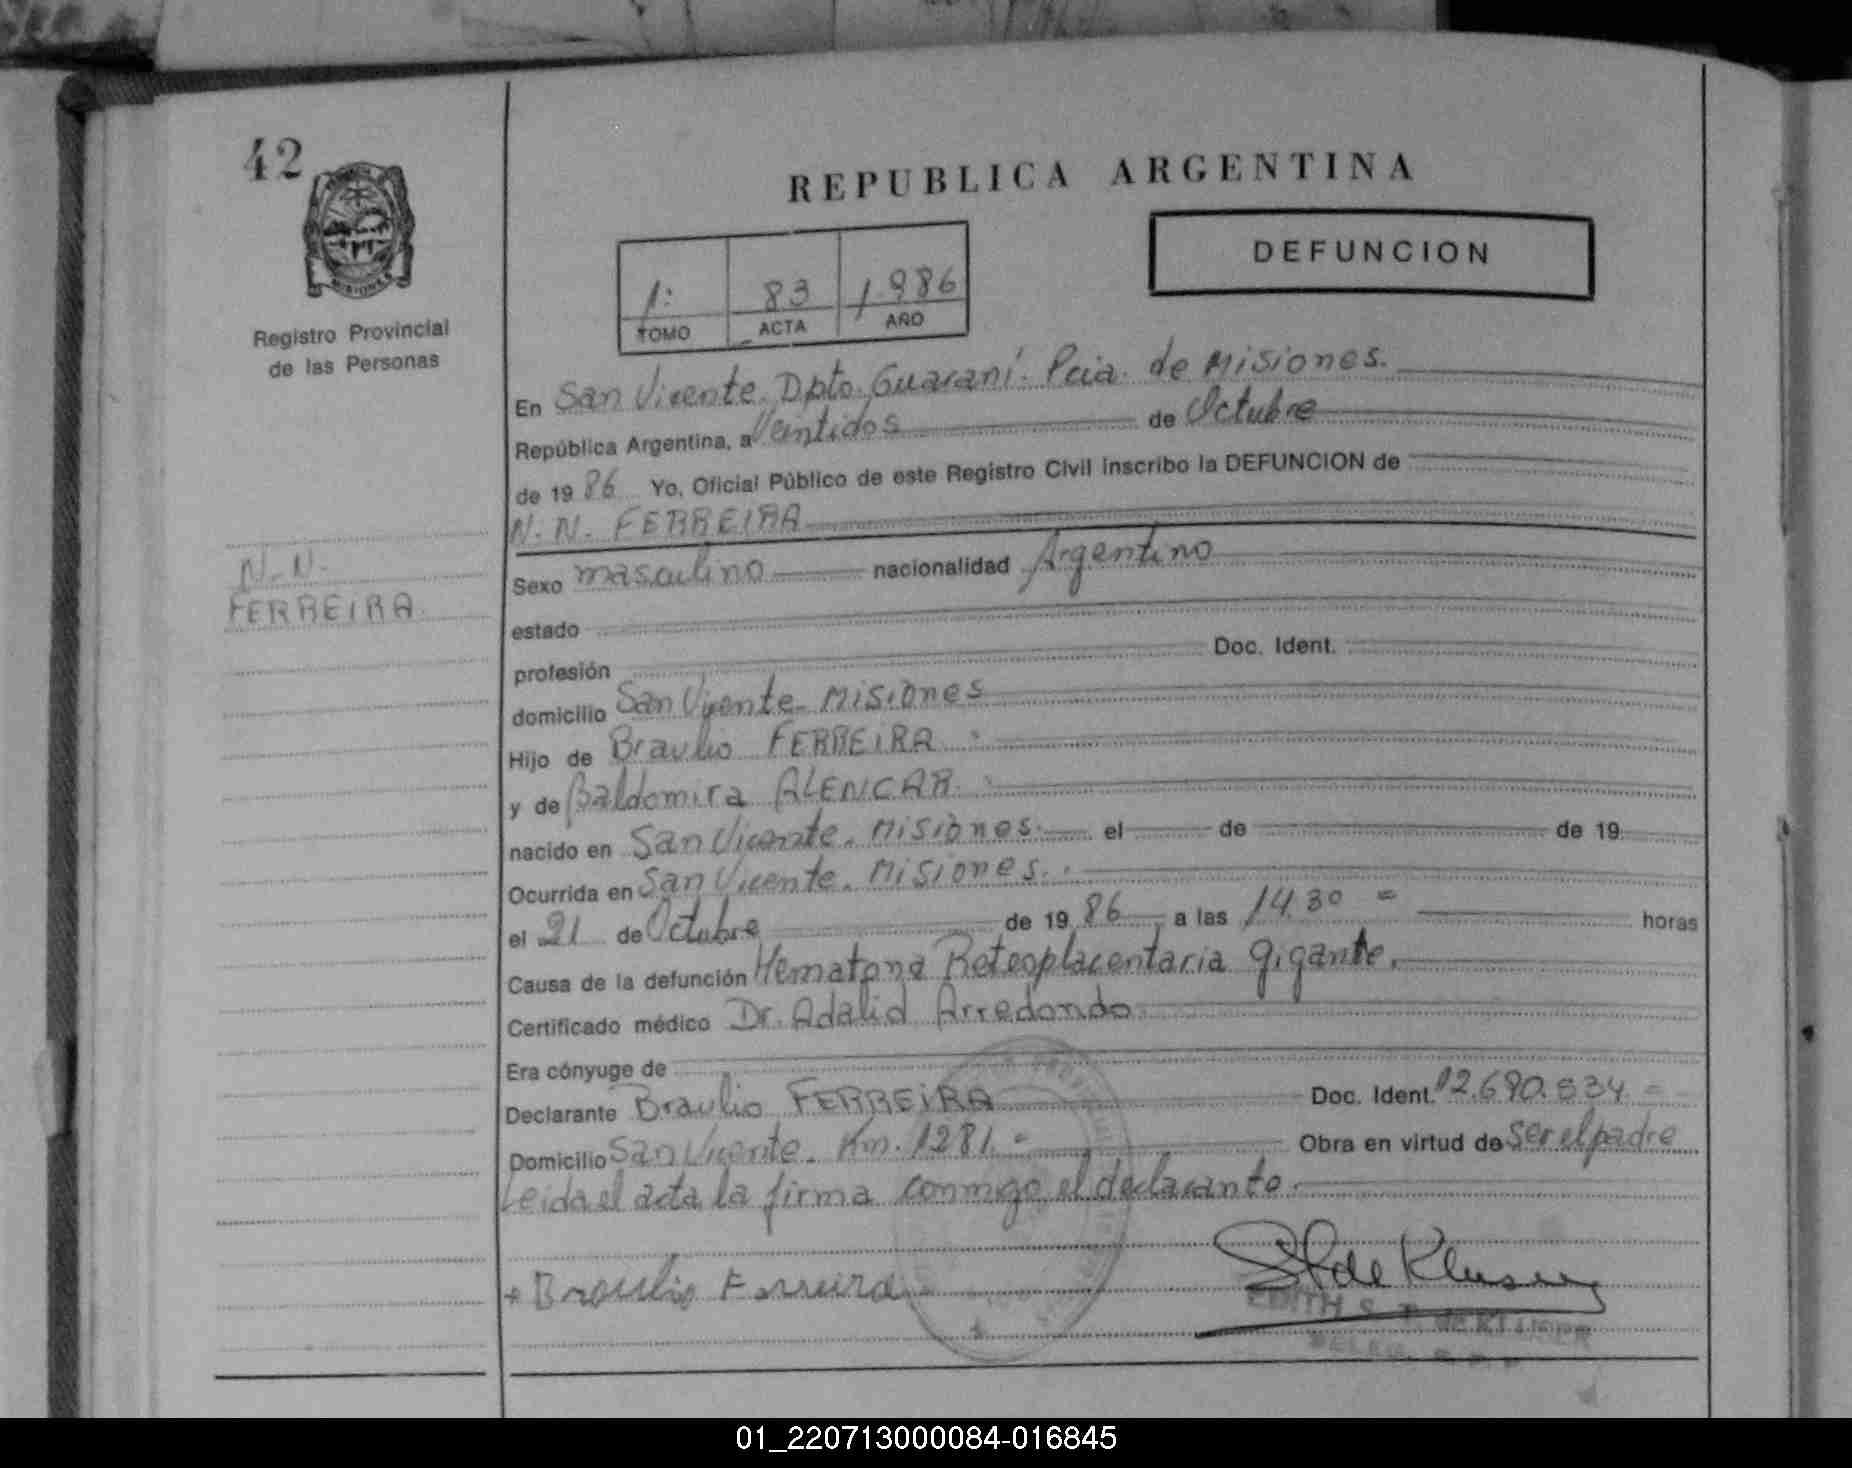 42
REPUBLICA ARGENTINA
DEFUNCION
1: 83 1.986
TOMO ACTA AÑO
MISIONES
Registro Provincial
de las Personas
En San Vicente. Dpto. Guaraní. Pcia. de Misiones.
República Argentina, a Veintidos de Octubre
de 19 86 Yo, Oficial Público de este Registro Civil inscribo la DEFUNCION de
N. N. FERREIRA
N. N.
FERREIRA
Sexo masculino nacionalidad Argentino
estado
profesión Doc. Ident.
domicilio San Vicente. Misiones
Hijo de Braulio FERREIRA
y de Baldomira ALENCAR
nacido en San Vicente. Misiones. el de de 19
Ocurrida en San Vicente. Misiones.
el 21 de Octubre de 19 86 a las 14.30 = horas
Causa de la defunción Hematona Reteoplacentaria gigante.
Certificado médico Dr. Adalid Arredondo
Era cónyuge de
Declarante Braulio FERREIRA Doc. Ident. 12.690.534 =
Domicilio San Vicente. Km. 1281. = Obra en virtud de ser el padre
Leida el acta la firma conmigo el declarante.
Braulio Ferreira
EDITH S.
01_220713000084-016845